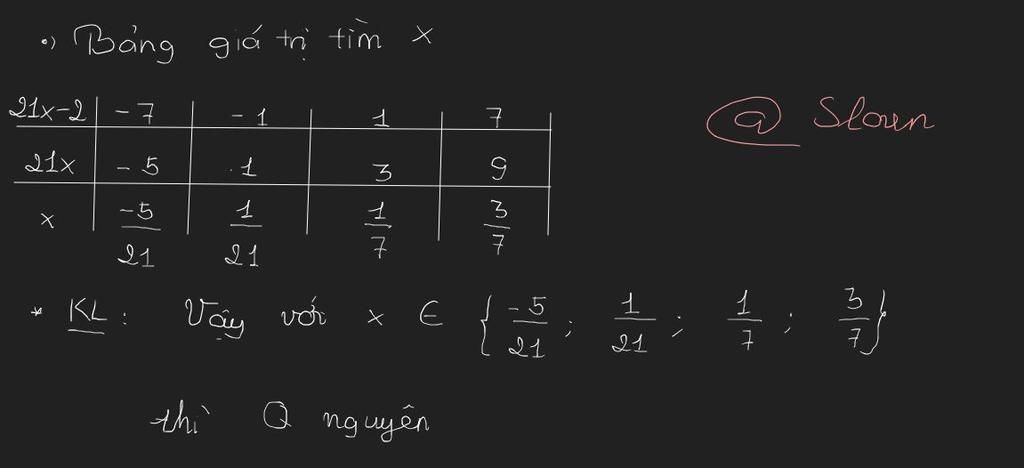 •) Bảng giá trị tìm x
21x-2 | -7 | -1 | 1 | 7
@ Sloun
21x | -5 | 1 | 3 | 9
x | -5/21 | 1/21 | 1/7 | 3/7
* KL: Vậy với x ∈ {-5/21; 1/21; 1/7; 3/7}
thì Q nguyên